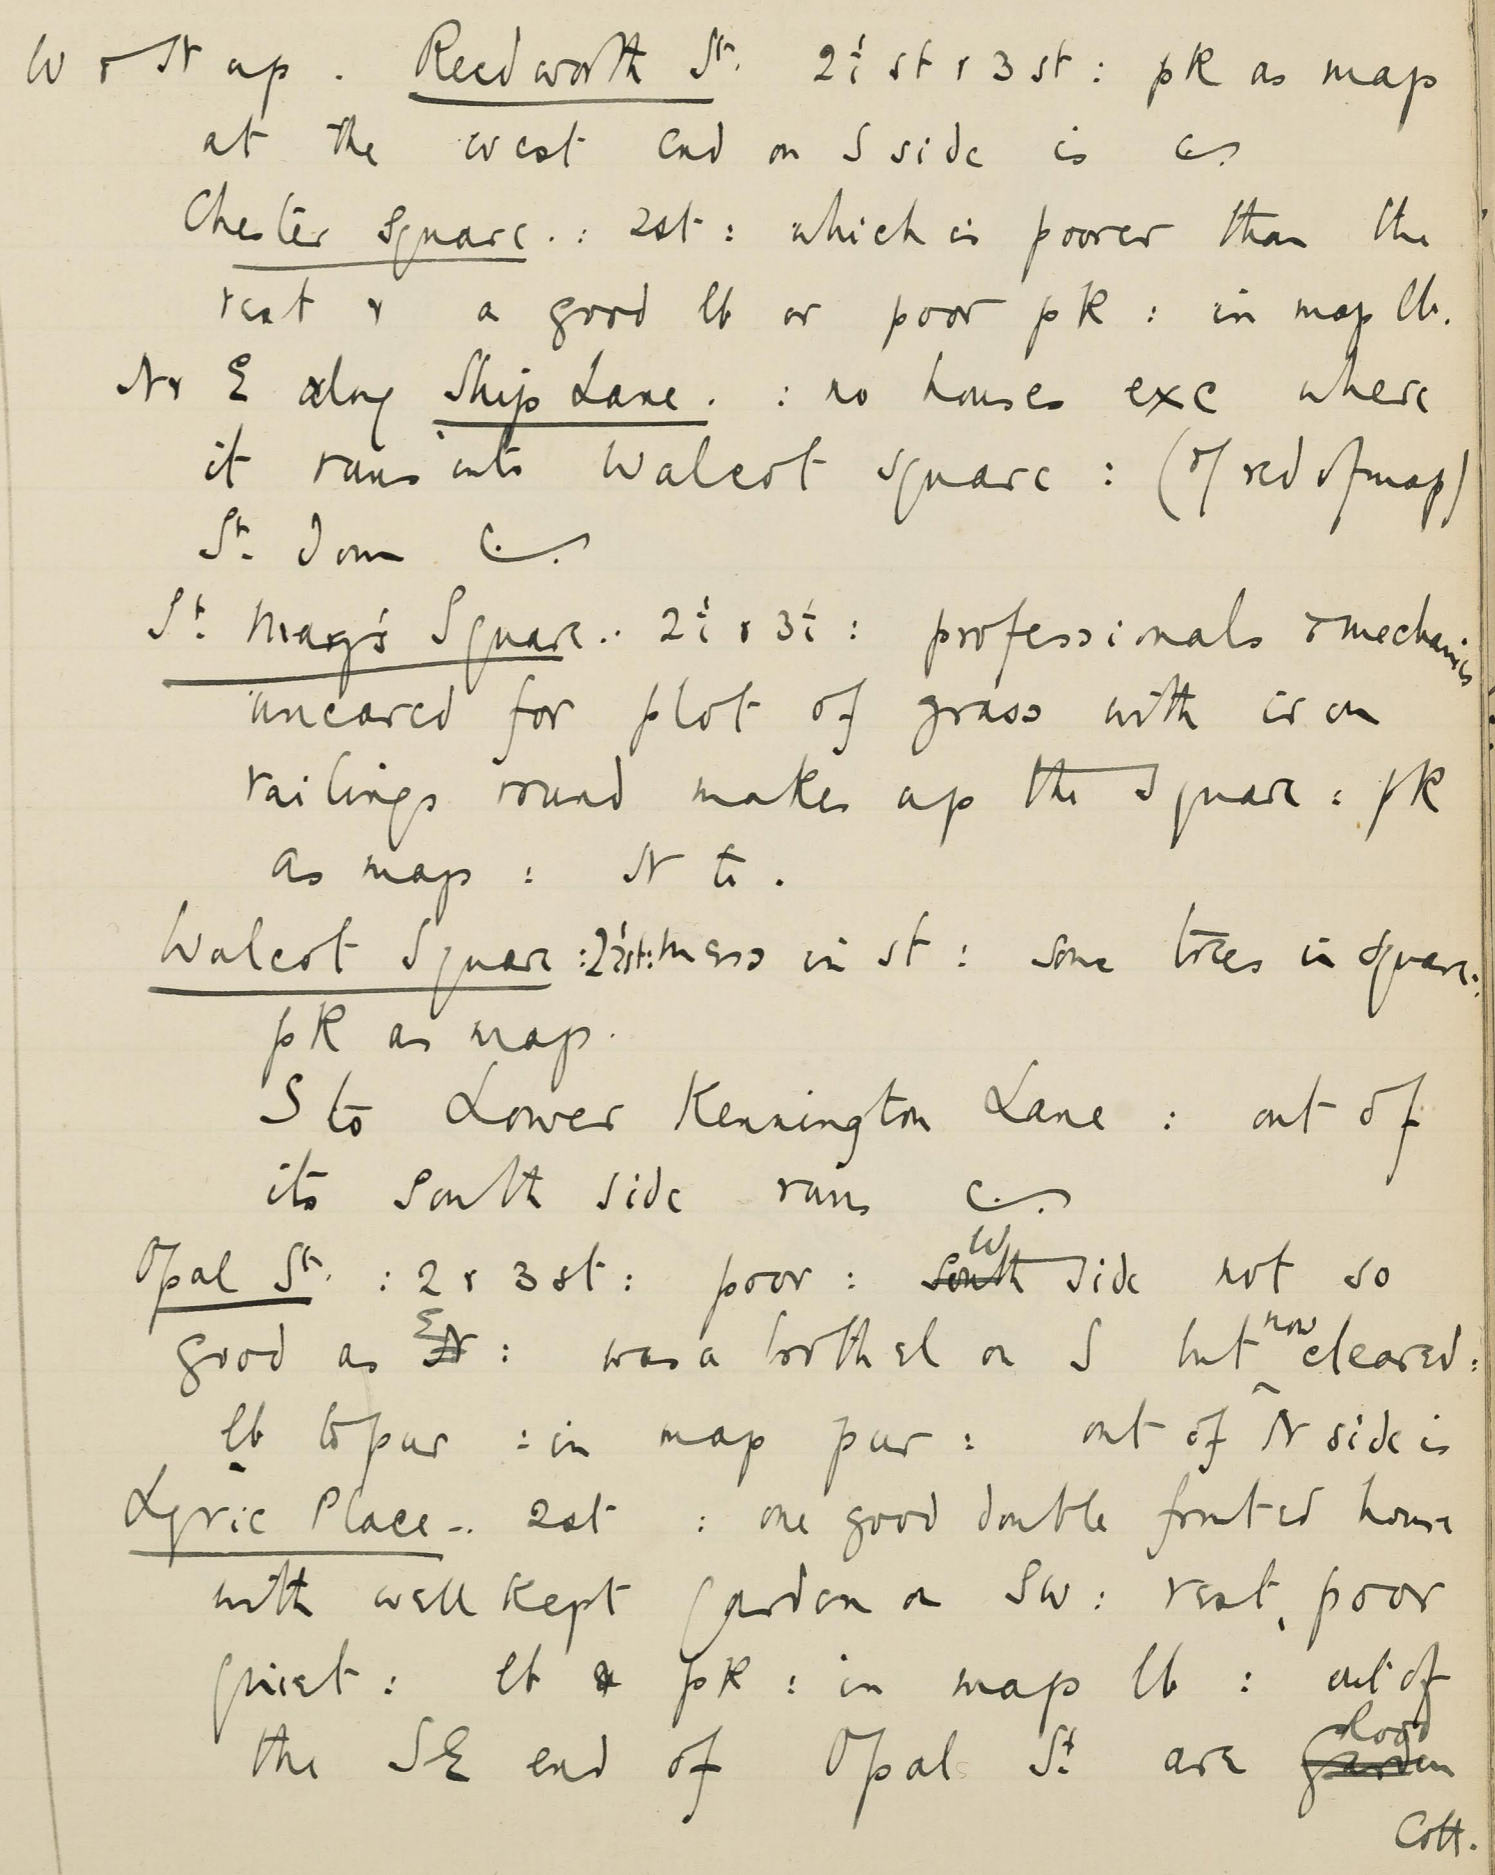 W & N up. Reedworth St. 2½ st & 3 st: pk as map
at the west end on S side is
Chester Square.: 2st: which is poorer than the
rest & a good lb or poor pk: in map lb.
N & E along Ship Lane.: no houses exc where
it runs into Walcot Square: (of red of map)
St. down
St. Mary's Square.. 2½ & 3½: professionals & mechanics
uncared for plot of grass with iron
railings round makes up the Square: pk
as map: N to.
Walcot Square: 2½st: mess in st: some trees in square:
pk as map.
S to Lower Kennington Lane: out of
its south side runs
Opal St.: 2 & 3 st: poor: south W side not so
good as N E: was a brothel on S but now cleared:
lb to pur: in map pur: out of N side is
Lyric Place.. 2st: one good double fronted house
with well kept garden on SW: rest, poor
quiet: lb & pk: in map lb: out of
the SE end of Opal St are garden
Cott.